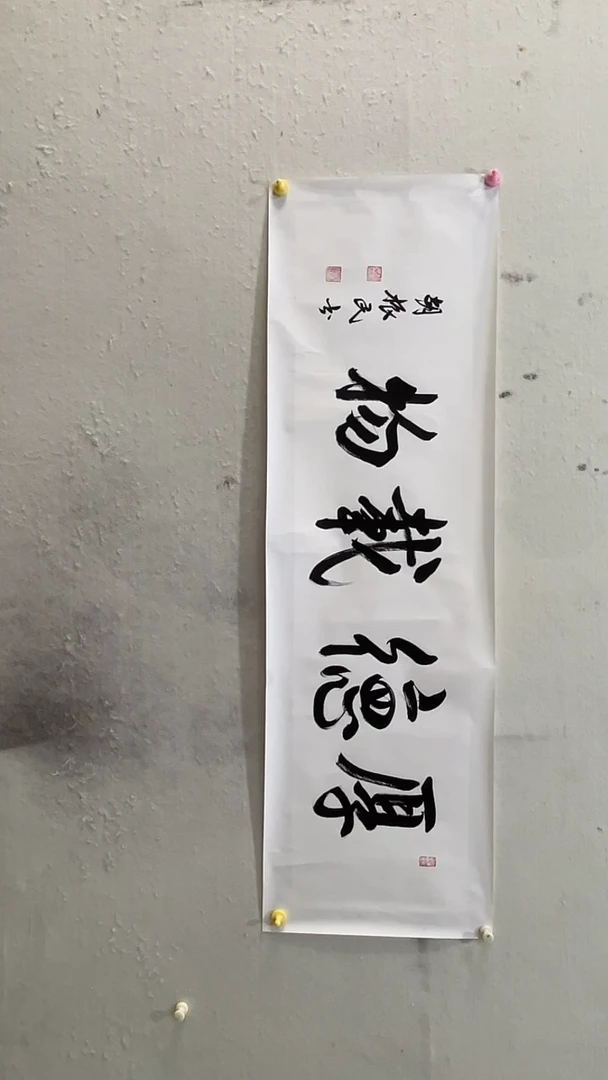 厚德載物
胡振民书